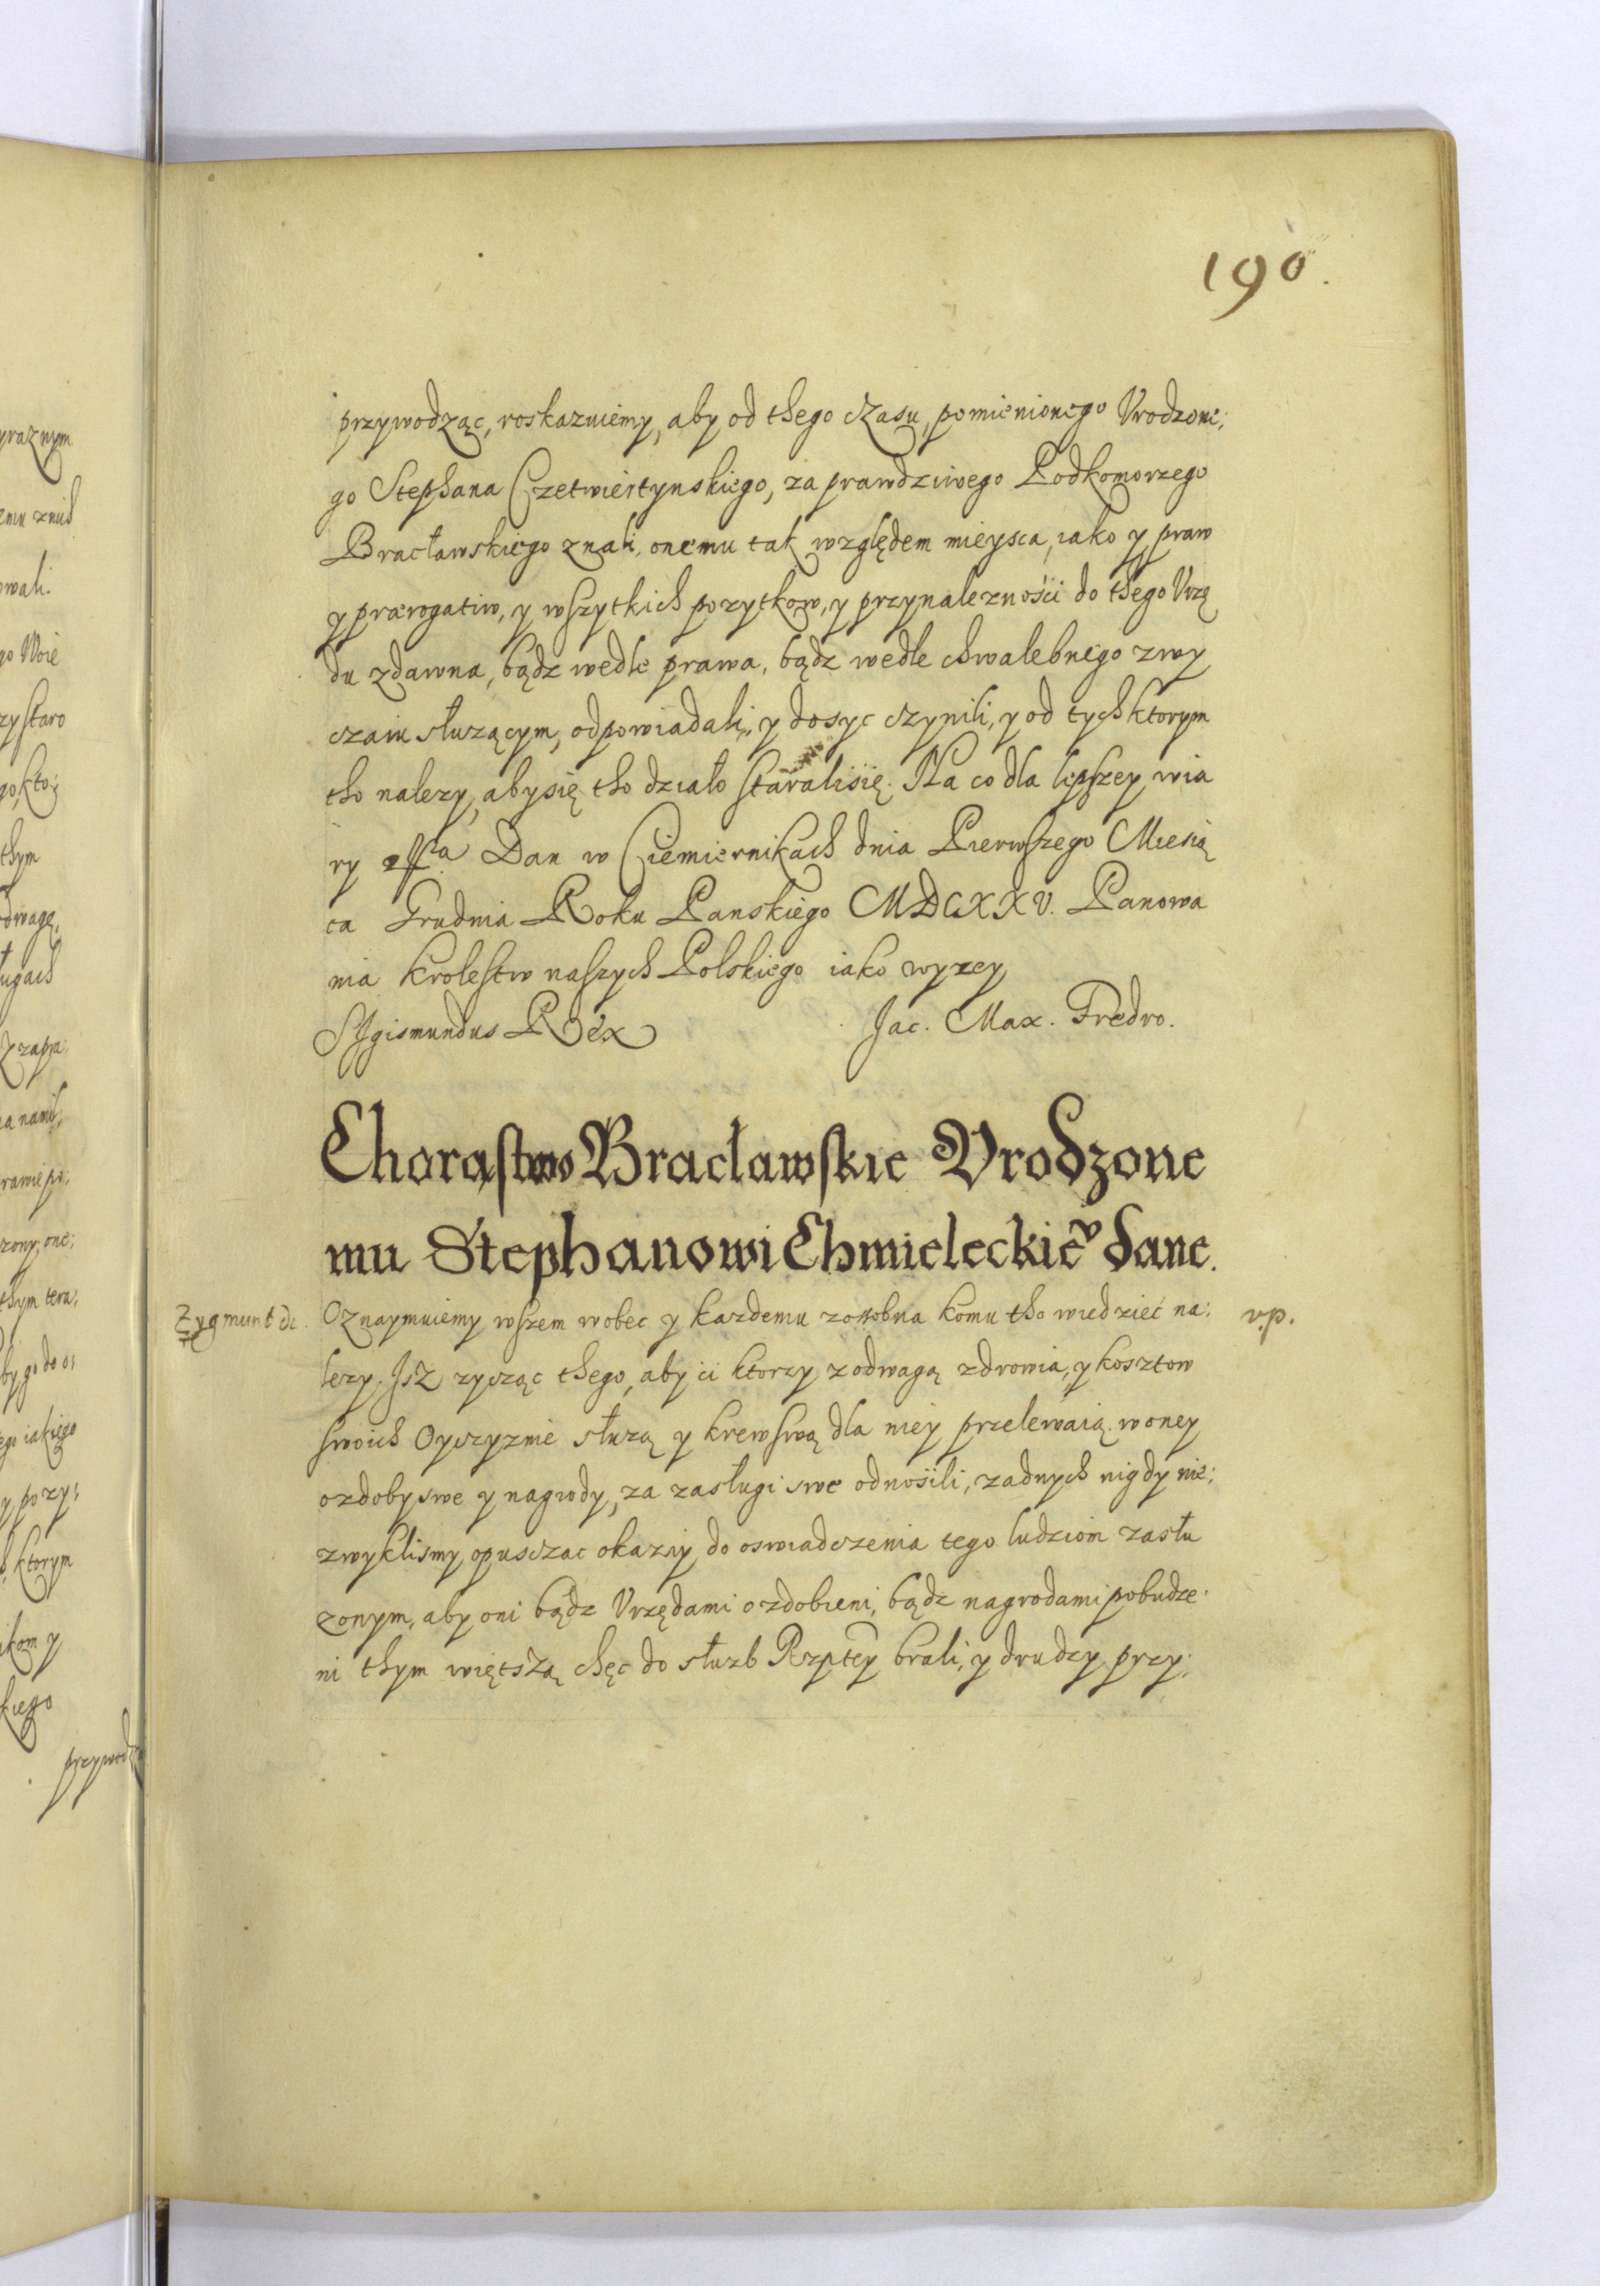 190.
przywodząc, roskazuiemy, aby od thego czasu, pomienionego Vrodzone;
go Stephana Czetwiertynskiego, za prawdziwego Podkomorzego
Bracławskiego znali, onemu tak względem mieysca, iako y praw
y prærogatiw, y wszytkich pozytkow, y przynaleznośći do thego Vrzę
du zdawna, bądz wedle prawa, bądz wedle chwalebnego zwy
czaiu słuzącym, odpowiadali, y dosyc czynili, y od tych ktorym
tho nalezy, aby się tho działo staralisię. Na co dla lepszey wia
ry Dan w Ciemiernikach dnia Pierwszego Miesią
ca Grudnia Roku Panskiego MDCXXV. Panowa
nia krolestw naszych Polskiego iako wyzey
Sigismundus Rex Jac. Max. Fredro.
Chorąstwo Bracławskie Vrodzone
mu Stephanowi Chmieleckiev dane.
Zygmunt dc. Oznaymuiemy wszem wobec y kazdemu zossobna komu tho wiedzieć na: v.p.
lezy. Jsz zycząc thego, aby ci ktorzy z odwagą zdrowia, y kosztow
swoich Oyczyznie słuzą y krew swą dla niey przelewaią. w oney
ozdoby swe y nagrody, za zasługi swe odnosili, zadnych nigdy nie:
zwyklismy opusczac okaziy do oswiadczenia tego ludziom zasłu
zonym, aby oni bądz Vrzędami ozdobieni, bądz nagrodami pobudze:
ni thym więtszą chęc do słuzb Rzptey brali, y drudzy przy: